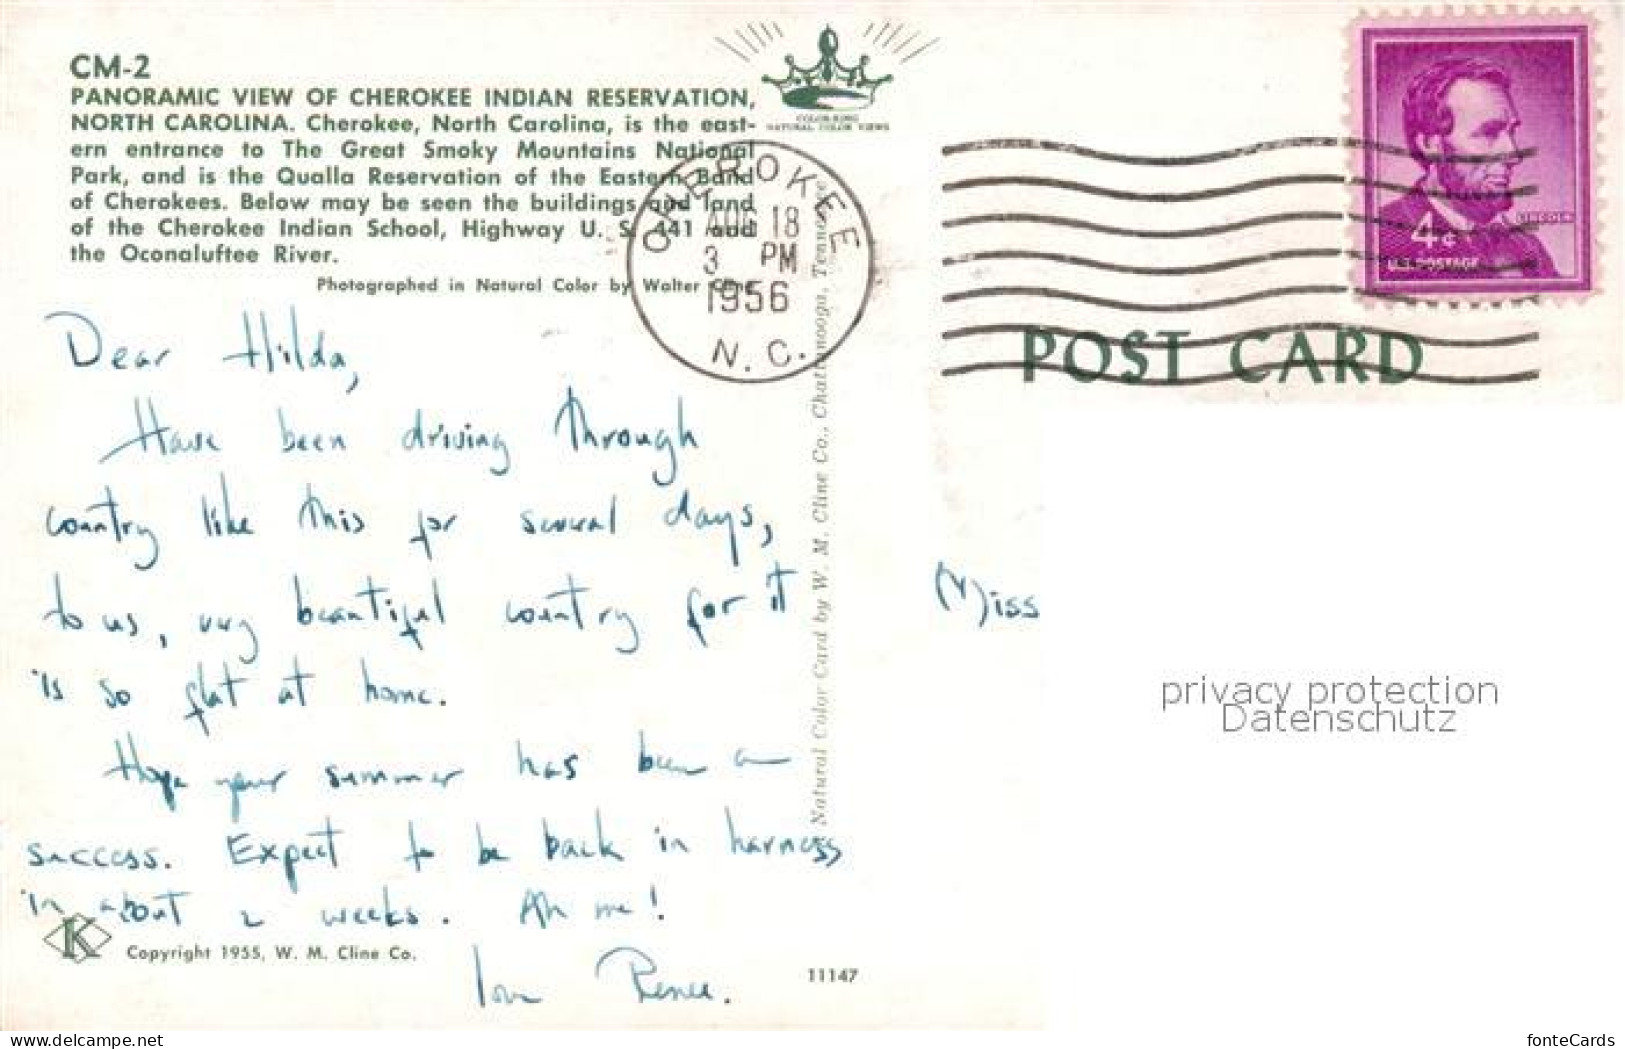 CM-2
PANORAMIC VIEW OF CHEROKEE INDIAN RESERVATION,
NORTH CAROLINA. Cherokee, North Carolina, is the east-
ern entrance to The Great Smoky Mountains National
Park, and is the Qualla Reservation of the Eastern Band
of Cherokees. Below may be seen the buildings and land
of the Cherokee Indian School, Highway U. S. 441 and
the Oconaluftee River.
Photographed in Natural Color by Walter Cline
COLOR-KING
NATURAL COLOR VIEWS
CHEROKEE
AUG 18
3 PM
1956
N.C.
LINCOLN
4¢
U.S. POSTAGE
POST CARD
Dear Hilda,
Have been driving through
country like this for several days,
to us, very beautiful country for it
is so flat at home.
Hope your summer has been a
success. Expect to be back in harness
in about 2 weeks. Ah me!
love Renee.
Natural Color Card by W. M. Cline Co., Chattanooga, Tennessee
Miss
privacy protection
Datenschutz
K
Copyright 1955, W. M. Cline Co.
11147
www.delcampe.net
fonteCards